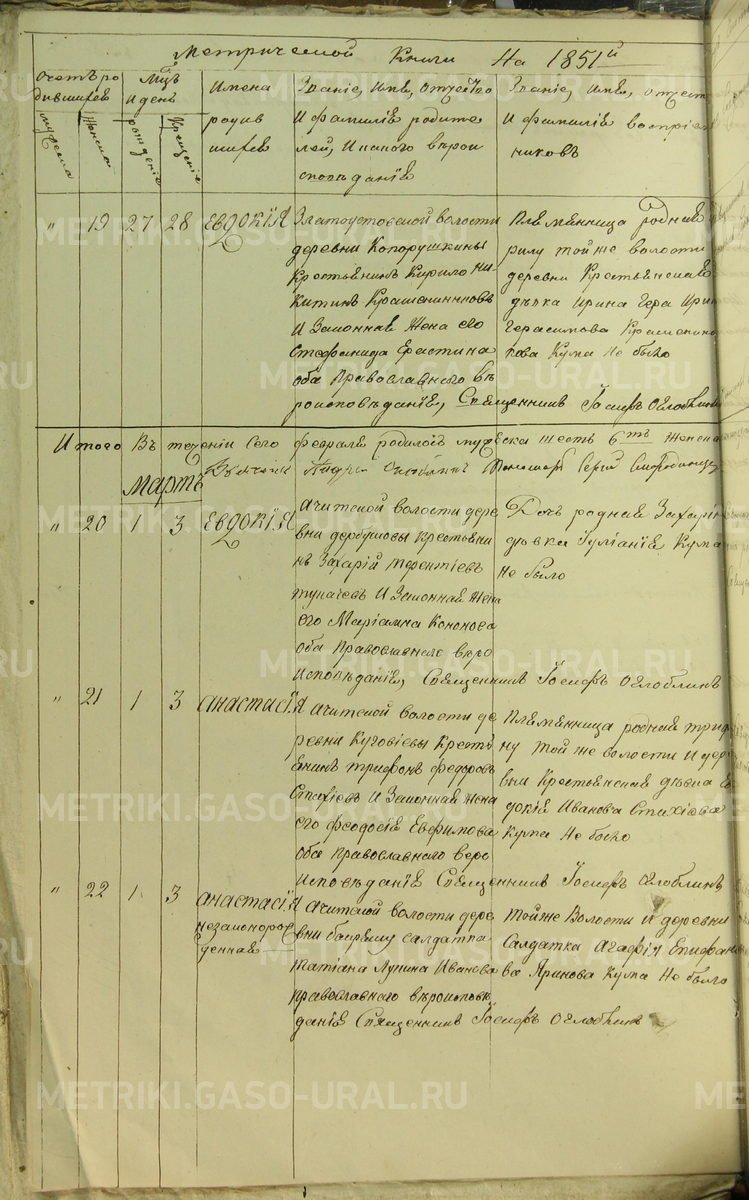 Метрической Книги На 1851й
Счетъ ро
дившихся
мужеска
женска
Мцъ
И день
рожденіе
Крещеніе
Имена
родив
шихся
Званіе, Имя, отчество
И фамилія родите
лей, И какого вѣрои
споведанія
Званіе, Имя, отчест
И фамилія воспріем
никовъ
" 19 27 28 ЕВДОКІЯ
Златоустовской волости
деревни Копорушкины
Крестьянинъ Кирило Ни
китинъ Крашенинниковъ
И Законная Жена его
Стефанида Ерастина
оба Православнаго вѣ
роисповѣданія, Священникъ Іосифъ Оглоблинъ
Племянница родная
рилу той же волости
деревни Крестьянская
дѣвка Ирина
Герасимова Крашенинни
кова Кума Не было
Итого Въ теченіи Сего февраля родилось мужеска шесть 6ть женска
Пономарь
Мартъ
" 20 1 3 ЕВДОКІЯ
Ачитской волости дере
вни дербушовы Крестьяни
нъ Захарій терентіевъ
тупачевъ И Законная Жена
его Маріамна Кононова
оба Православнаго вѣро
Исповѣданія, Священникъ Іосифъ Оглоблинъ
Дочь родная Захарія
дѣвка Іуліанія Кума
Не было
" 21 1 3 АНАСТАСІЯ
Ачитской волости де
ревни Куговіевы Кресть
янинъ трифонъ федоровъ
Стахіевъ И Законная Жена
его феодосія Евфимова
Оба Православнаго веро
Исповѣданія Священникъ Іосифъ Оглоблинъ
Племянница родная триф
ну той же волости И дере
вни Крестьянская дѣвка Ев
докія Иванова Стахіева
Кума Не было
" 22 1 3 АНАСТАСІЯ
незаконорож
денная
Ачитской волости дере
вни салдатка
татіана Лупина Иванова
Православнаго вѣроисповѣ
данія Священникъ Іосифъ Оглоблинъ
Той же Волости И деревни
Салдатка Агафія Епифано
ва Яринова Кума Не было
METRIKI.GASO-URAL.RU